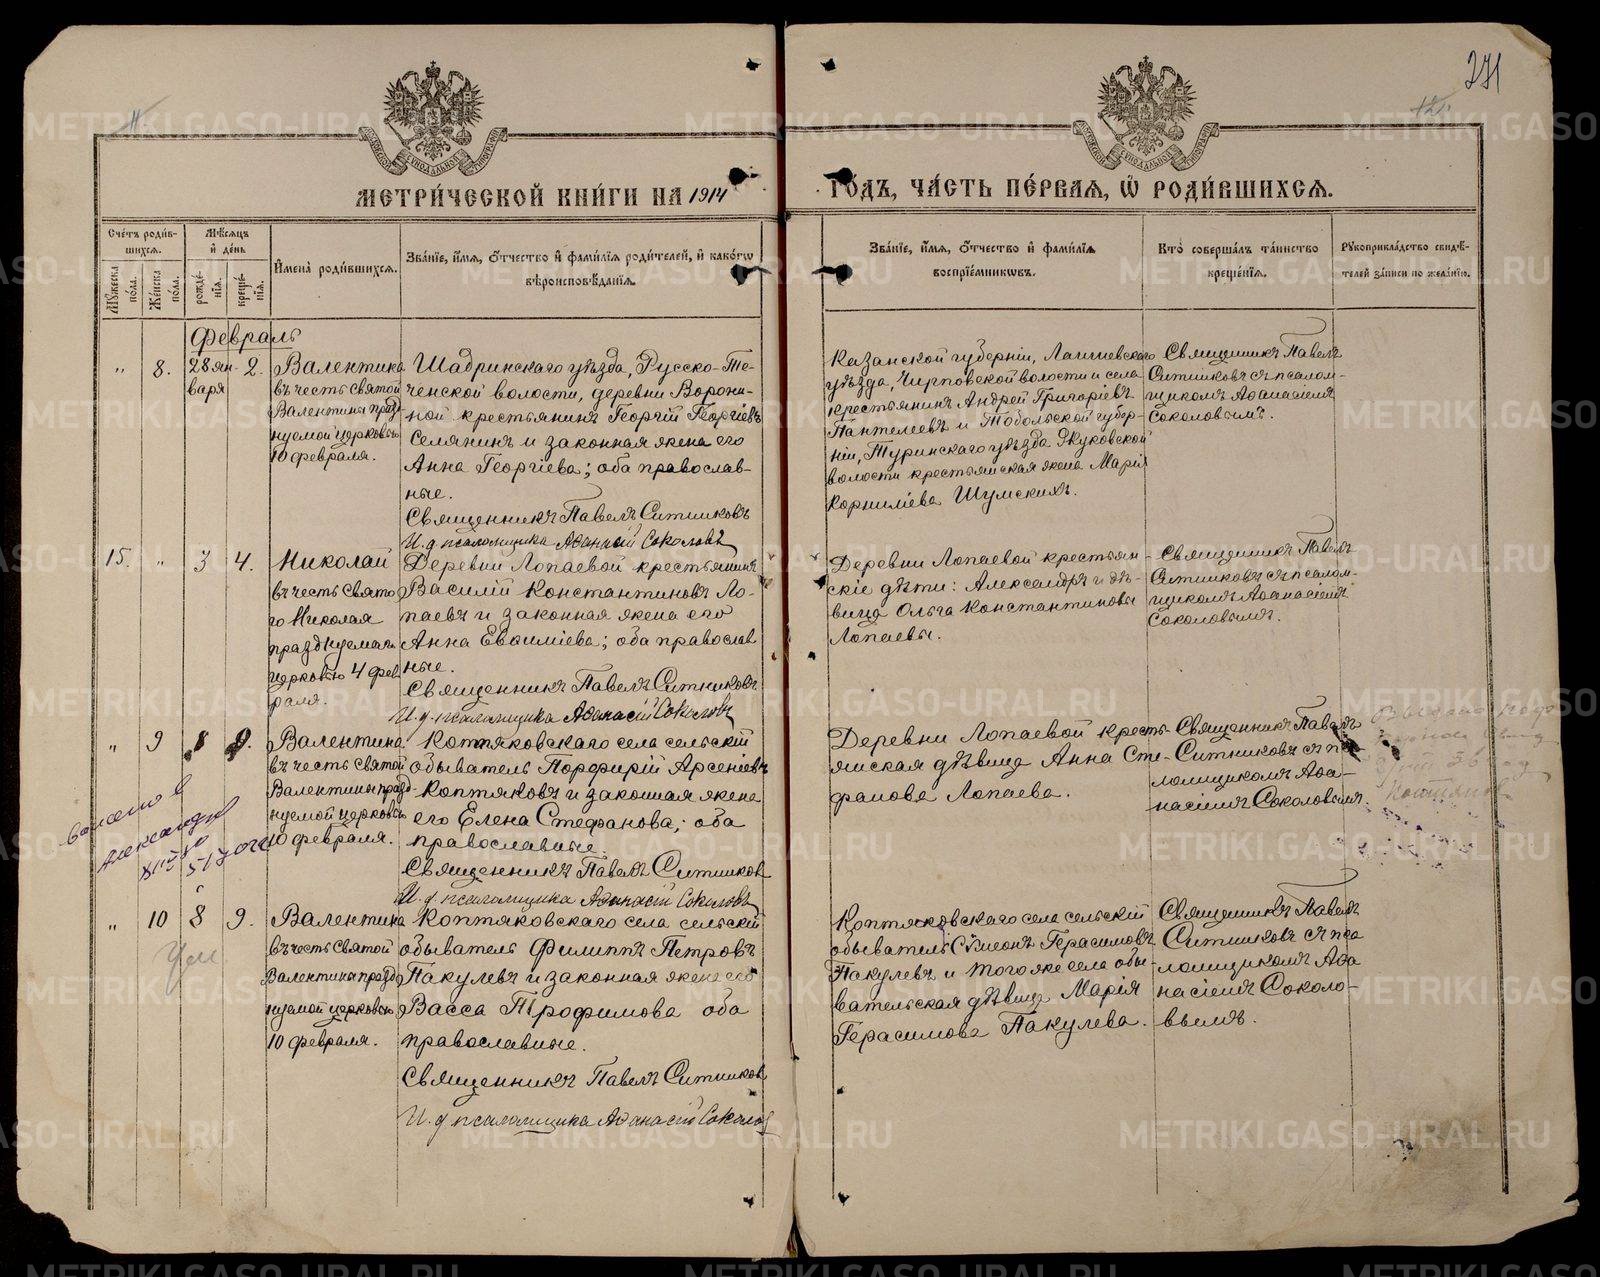 271
МЕТРИ́ЧЕСКОЙ КНИ́ГИ НА 1914
ГО́ДЪ, ЧА́СТЬ ПЕ́РВАЯ, Ѡ҆ РОДИ́ВШИХСѦ.
Сче́тъ роди́в-
шихсѧ.
Мѣ́сѧцъ
и҆ де́нь
Мꙋ́жеска
по́ла.
Же́нска
по́ла.
рожде́-
нїѧ.
креще́-
нїѧ.
И҆мена̀ роди́вшихсѧ.
Зва́нїе, и҆́мѧ, ѻ҆́тчество и҆ фами́лїѧ роди́телей, и҆ како́гѡ
вѣроисповѣ́данїѧ.
Зва́нїе, и҆́мѧ, ѻ҆́тчество и҆ фами́лїѧ
воспрїе́мникѡвъ.
Кто̀ соверша́лъ та́инство
креще́нїѧ.
Рꙋкоприкла́дство свидѣ́-
телей за́писи по жела́нїю.
Февраль
„ 8. 28 ян-
варя 2.
Валентина
въ честь святой
Валентины празд-
нуемой церковью
10 февраля.
Шадринскаго уѣзда, Русско-Те-
ченской волости, деревни Ворони-
ной крестьянинъ Георгій Георгіевъ
Селянинъ и законная жена его
Анна Георгіева; оба православ-
ные.
Священникъ Павелъ Ситниковъ
И. д. псаломщика Аѳанасій Соколовъ
Казанской губерніи, Лаишевскаго
уѣзда, Чирповской волости и села
крестьянинъ Андрей Григоріевъ
Пантелеевъ и Тобольской губер-
ніи, Туринскаго уѣзда Жуковской
волости крестьянская жена Марія
Корниліева Шумскихъ.
Священникъ Павелъ
Ситниковъ съ псалом-
щикомъ Аѳанасіемъ
Соколовымъ.
15. „ 3 4.
Николай
въ честь свято
го Николая
празднуемаго
церковью 4 фев
раля.
Деревни Лопаевой крестьянинъ
Василій Константиновъ Ло-
паевъ и законная жена его
Анна Евѳиміева; оба православ
ные.
Священникъ Павелъ Ситниковъ
И. д. псаломщика Аѳанасій Соколовъ
Деревни Лопаевой крестьян-
скіе дѣти: Александръ и дѣ-
вица Ольга Константиновы
Лопаевы.
Священникъ Павелъ
Ситниковъ съ псалом-
щикомъ Аѳанасіемъ
Соколовымъ.
„ 9 8 9.
Валентина
въ честь святой
Валентины празд-
нуемой церковью
10 февраля.
Коптяковскаго села сельскій
обыватель Порфирій Арсеніевъ
Коптяковъ и законная жена
его Елена Стефанова; оба
православные.
Священникъ Павелъ Ситников
И. д. псаломщика Аѳанасій Соколовъ
Деревни Лопаевой кресть-
янская дѣвица Анна Сте-
фанова Лопаева.
Священникъ Павелъ
Ситниковъ съ пса-
ломщикомъ Аѳа-
насіемъ Соколовымъ.
„ 10 8 9.
Валентина
въ честь Святой
Валентины праздо
нуемой церковью
10 февраля.
Коптяковскаго села сельскій
обыватель Филиппъ Петровъ
Пакулевъ и законная жена его
Васса Трофимова оба
православные.
Священникъ Павелъ Ситников
И. д псаломщика Аѳанасій Соколов
Коптяковскаго села сельскій
обыватель Симеонъ Герасимовъ
Пакулевъ и того же села обы-
вательская дѣвица Марія
Герасимова Пакулева.
Священникъ Павелъ
Ситниковъ съ пса
ломщикомъ Аѳа
насіемъ Соколо-
вымъ.
METRIKI.GASO-URAL.RU